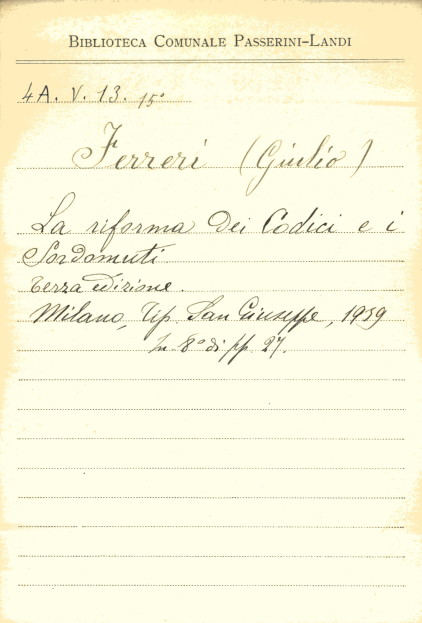 Biblioteca Comunale Passerini-Landi
4A. V. 13. 15°
Ferreri (Giulio)
La riforma dei Codici e i
Sordomuti
terza edizione.
Milano, Tip. San Giuseppe, 1939
In 8° di pp. 27.